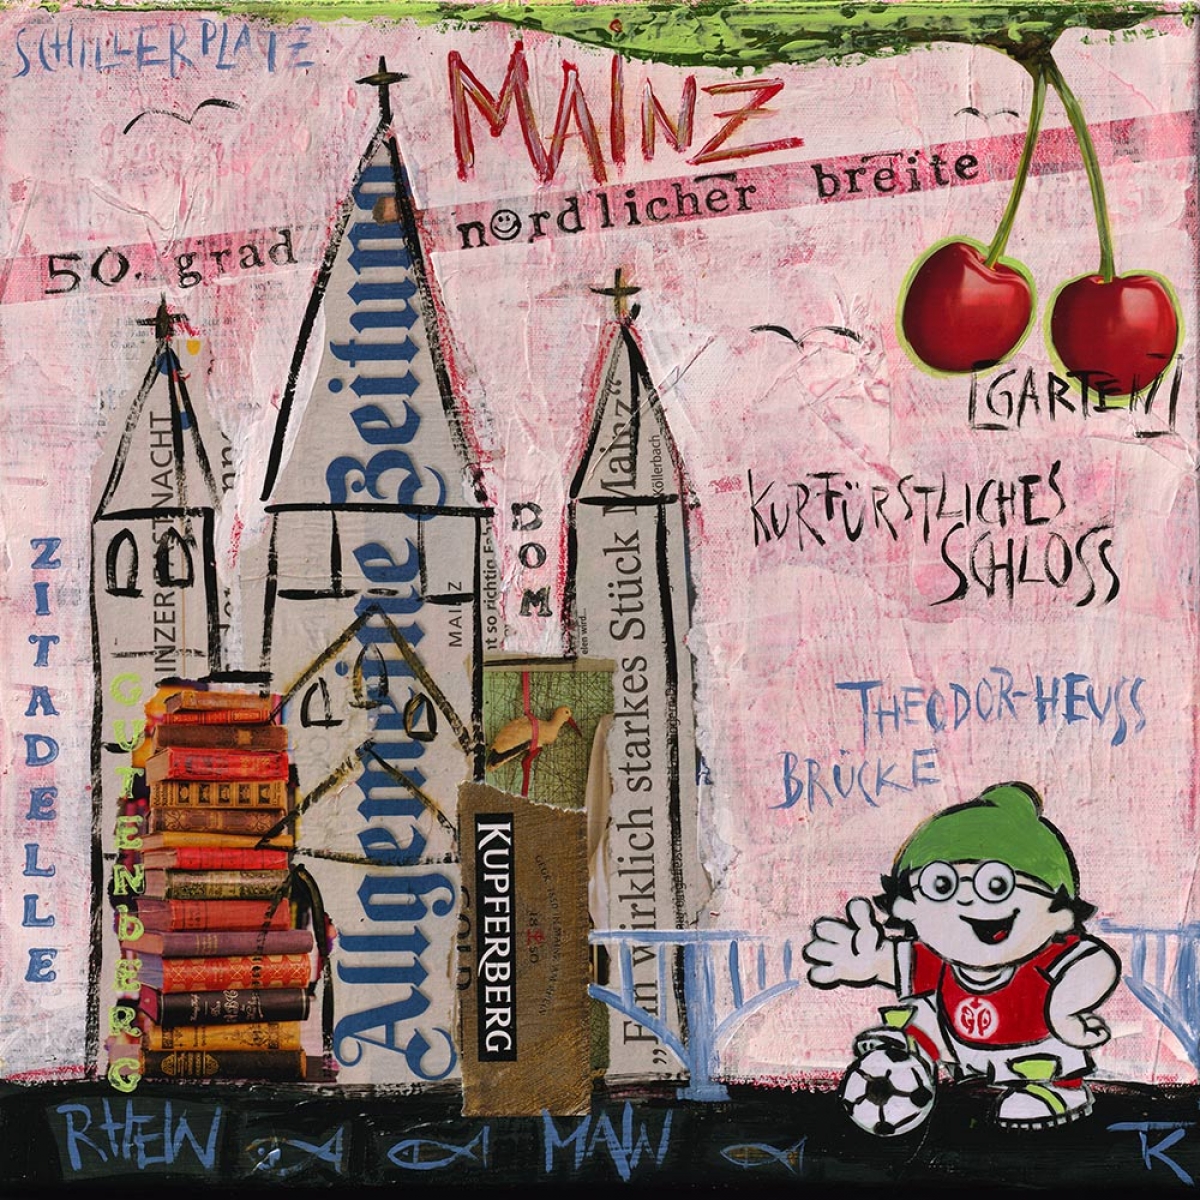 SCHILLERPLATZ
MAINZ
50. grad nördlicher breite
[GARTEN]
INZER FASTNACHT
Allgemeine Zeitung
MAINZ
DOM
„Ein wirklich starkes Stück Mainz“
Köllerbach
KURFÜRSTLICHES
SCHLOSS
ZITADELLE
GUTENBERG
THEODOR-HEUSS
BRÜCKE
KUPFERBERG
1850
RHEIN
MAIN
TK